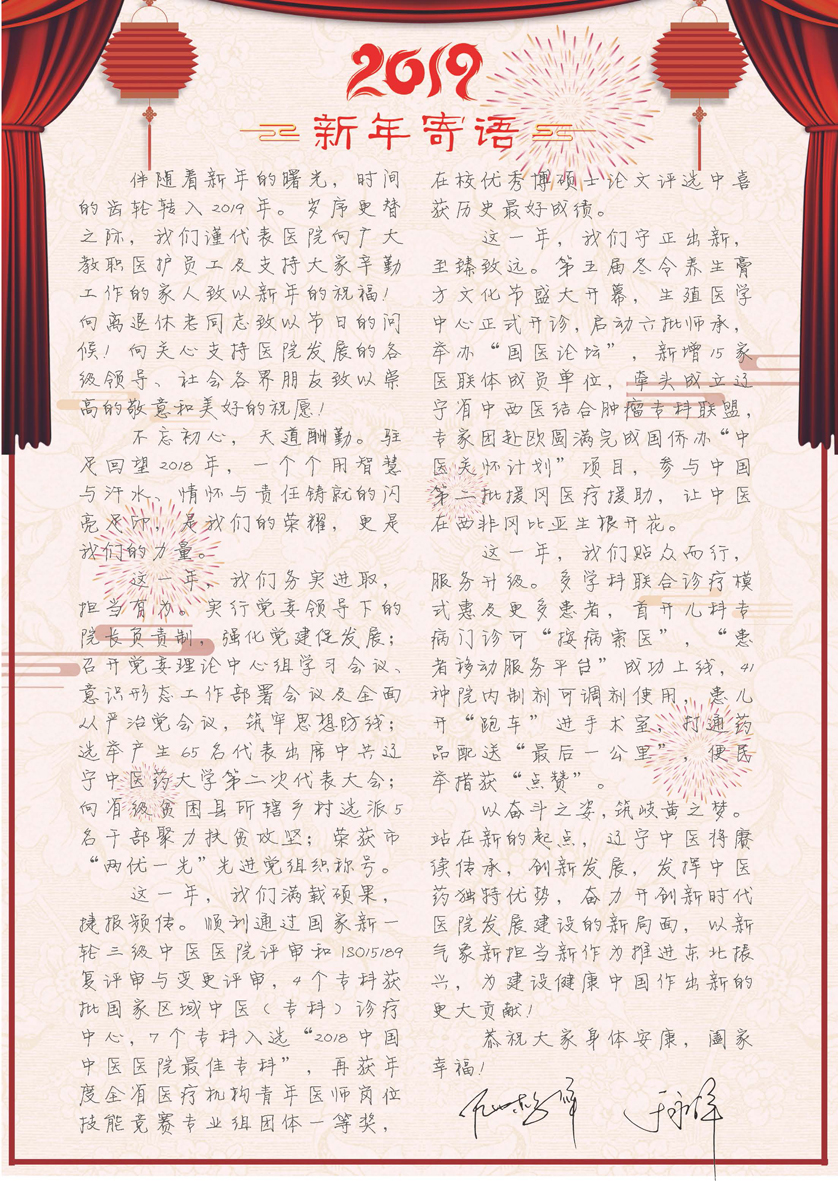 2019
新年寄语
伴随着新年的曙光，时间
的齿轮转入2019年。岁序更替
之际，我们谨代表医院向广大
教职医护员工及支持大家辛勤
工作的家人致以新年的祝福！
向离退休老同志致以节日的问
候！向关心支持医院发展的各
级领导、社会各界朋友致以崇
高的敬意和美好的祝愿！
不忘初心，天道酬勤。驻
足回望2018年，一个个用智慧
与汗水、情怀与责任铸就的闪
亮足印，是我们的荣耀，更是
我们的力量。
这一年，我们务实进取，
担当有为。实行党委领导下的
院长负责制，强化党建促发展；
召开党委理论中心组学习会议、
意识形态工作部署会议及全面
从严治党会议，筑牢思想防线；
选举产生65名代表出席中共辽
宁中医药大学第二次代表大会；
向省级贫困县所辖乡村选派5
名干部聚力扶贫攻坚；荣获市
“两优一先”先进党组织称号。
这一年，我们满载硕果，
捷报频传。顺利通过国家新一
轮三级中医医院评审和ISO15189
复评审与变更评审，4个专科获
批国家区域中医（专科）诊疗
中心，7个专科入选“2018中国
中医医院最佳专科”，再获年
度全省医疗机构青年医师岗位
技能竞赛专业组团体一等奖，
在校优秀博硕士论文评选中喜
获历史最好成绩。
这一年，我们守正出新，
至臻致远。第五届冬令养生膏
方文化节盛大开幕，生殖医学
中心正式开诊，启动六批师承，
举办“国医论坛”，新增15家
医联体成员单位，牵头成立辽
宁省中西医结合肿瘤专科联盟，
专家团赴欧圆满完成国侨办“中
医关怀计划”项目，参与中国
第二批援冈医疗援助，让中医
在西非冈比亚生根开花。
这一年，我们贴众而行，
服务升级。多学科联合诊疗模
式惠及更多患者，首开儿科专
病门诊可“按病索医”，“患
者移动服务平台”成功上线，41
种院内制剂可调剂使用，患儿
开“跑车”进手术室，打通药
品配送“最后一公里”，便民
举措获“点赞”。
以奋斗之姿，筑岐黄之梦。
站在新的起点，辽宁中医将赓
续传承，创新发展，发挥中医
药独特优势，奋力开创新时代
医院发展建设的新局面，以新
气象新担当新作为推进东北振
兴，为建设健康中国作出新的
更大贡献！
恭祝大家身体安康，阖家
幸福！
于永铎